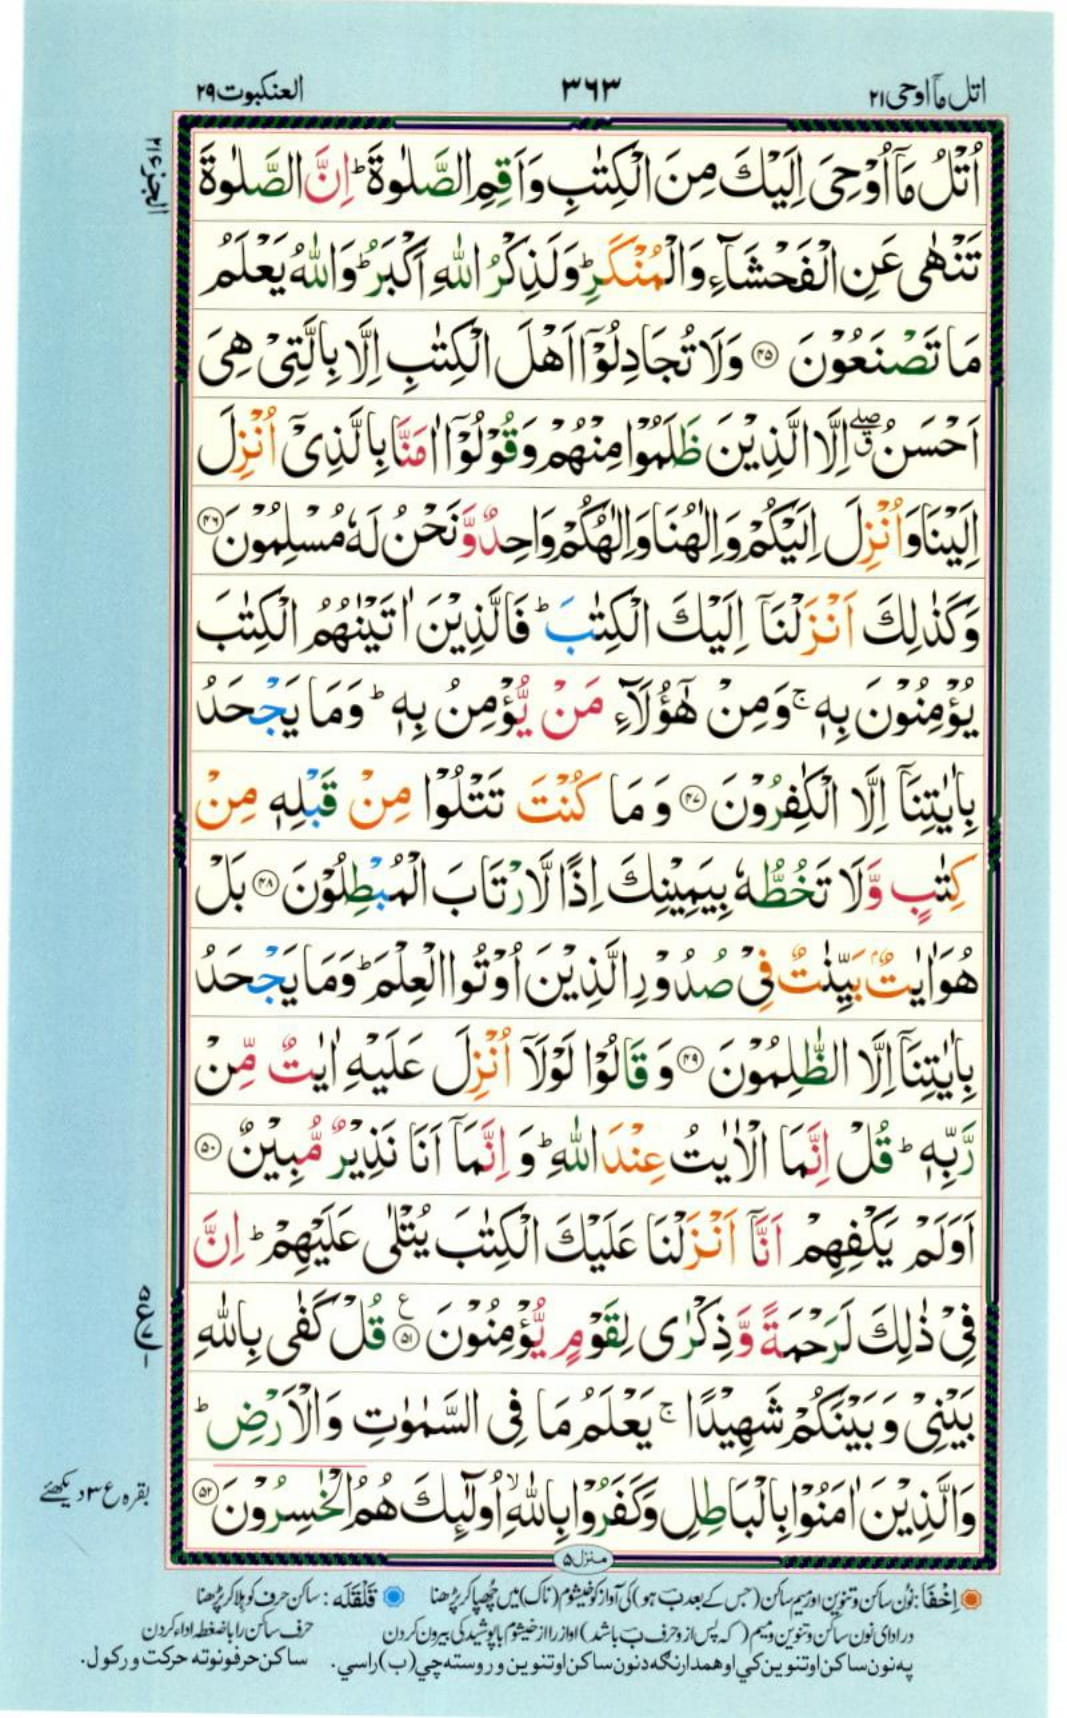 اتل مآاوحی ۲۱
۳۶۳
العنکبوت ۲۹
اُتْلُ مَاۤ اُوْحِیَ اِلَیْكَ مِنَ الْكِتٰبِ وَاَقِمِ الصَّلٰوةَ ؕ اِنَّ الصَّلٰوةَ
تَنْهٰی عَنِ الْفَحْشَآءِ وَالْمُنْكَرِ ؕ وَلَذِكْرُ اللّٰهِ اَكْبَرُ ؕ وَاللّٰهُ یَعْلَمُ
مَا تَصْنَعُوْنَ ۴۵ وَلَا تُجَادِلُوْۤا اَهْلَ الْكِتٰبِ اِلَّا بِالَّتِیْ هِیَ
اَحْسَنُ ۖق اِلَّا الَّذِیْنَ ظَلَمُوْا مِنْهُمْ وَقُوْلُوْۤا اٰمَنَّا بِالَّذِیْۤ اُنْزِلَ
اِلَیْنَا وَاُنْزِلَ اِلَیْكُمْ وَاِلٰهُنَا وَاِلٰهُكُمْ وَاحِدٌ وَّنَحْنُ لَهٗ مُسْلِمُوْنَ ۴۶
وَكَذٰلِكَ اَنْزَلْنَاۤ اِلَیْكَ الْكِتٰبَ ؕ فَالَّذِیْنَ اٰتَیْنٰهُمُ الْكِتٰبَ
یُؤْمِنُوْنَ بِهٖ ۚ وَمِنْ هٰۤؤُلَآءِ مَنْ یُّؤْمِنُ بِهٖ ؕ وَمَا یَجْحَدُ
بِاٰیٰتِنَاۤ اِلَّا الْكٰفِرُوْنَ ۴۷ وَمَا كُنْتَ تَتْلُوْا مِنْ قَبْلِهٖ مِنْ
كِتٰبٍ وَّلَا تَخُطُّهٗ بِیَمِیْنِكَ اِذًا لَّارْتَابَ الْمُبْطِلُوْنَ ۴۸ بَلْ
هُوَ اٰیٰتٌۢ بَیِّنٰتٌ فِیْ صُدُوْرِ الَّذِیْنَ اُوْتُوا الْعِلْمَ ؕ وَمَا یَجْحَدُ
بِاٰیٰتِنَاۤ اِلَّا الظّٰلِمُوْنَ ۴۹ وَقَالُوْا لَوْلَاۤ اُنْزِلَ عَلَیْهِ اٰیٰتٌ مِّنْ
رَّبِّهٖ ؕ قُلْ اِنَّمَا الْاٰیٰتُ عِنْدَ اللّٰهِ ؕ وَاِنَّمَاۤ اَنَا نَذِیْرٌ مُّبِیْنٌ ۵۰
اَوَلَمْ یَكْفِهِمْ اَنَّاۤ اَنْزَلْنَا عَلَیْكَ الْكِتٰبَ یُتْلٰی عَلَیْهِمْ ؕ اِنَّ
فِیْ ذٰلِكَ لَرَحْمَةً وَّذِكْرٰی لِقَوْمٍ یُّؤْمِنُوْنَ ۵۱ ع قُلْ كَفٰی بِاللّٰهِ
بَیْنِیْ وَبَیْنَكُمْ شَهِیْدًا ۚ یَعْلَمُ مَا فِی السَّمٰوٰتِ وَالْاَرْضِ ؕ
وَالَّذِیْنَ اٰمَنُوْا بِالْبَاطِلِ وَكَفَرُوْا بِاللّٰهِ ۙ اُولٰٓئِكَ هُمُ الْخٰسِرُوْنَ ۵۲
منزل ۵
بقرہ ع ۳ دیکھئے
اِخْفَا: نُون ساکن وتنوین اور میم ساکن (جس کے بعد بَ ہو) کی آواز کو خیشوم (ناک) میں چُھپا کر پڑھنا
قَلْقَلَہ: ساکن حرف کو ہلا کر پڑھنا
در ادای نون ساکن وتنوین ومیم (کہ پس از و حرف بَ باشد) آواز را از خیشوم با پوشیدگی بیرون کردن
حرف ساکن را با ضغطہ اداء کردن
په نون ساکن او تنوین کي او همدارنګه د نون ساکن او تنوین وروسته چي (ب) راسي.
ساکن حرفونو ته حرکت ورکول.